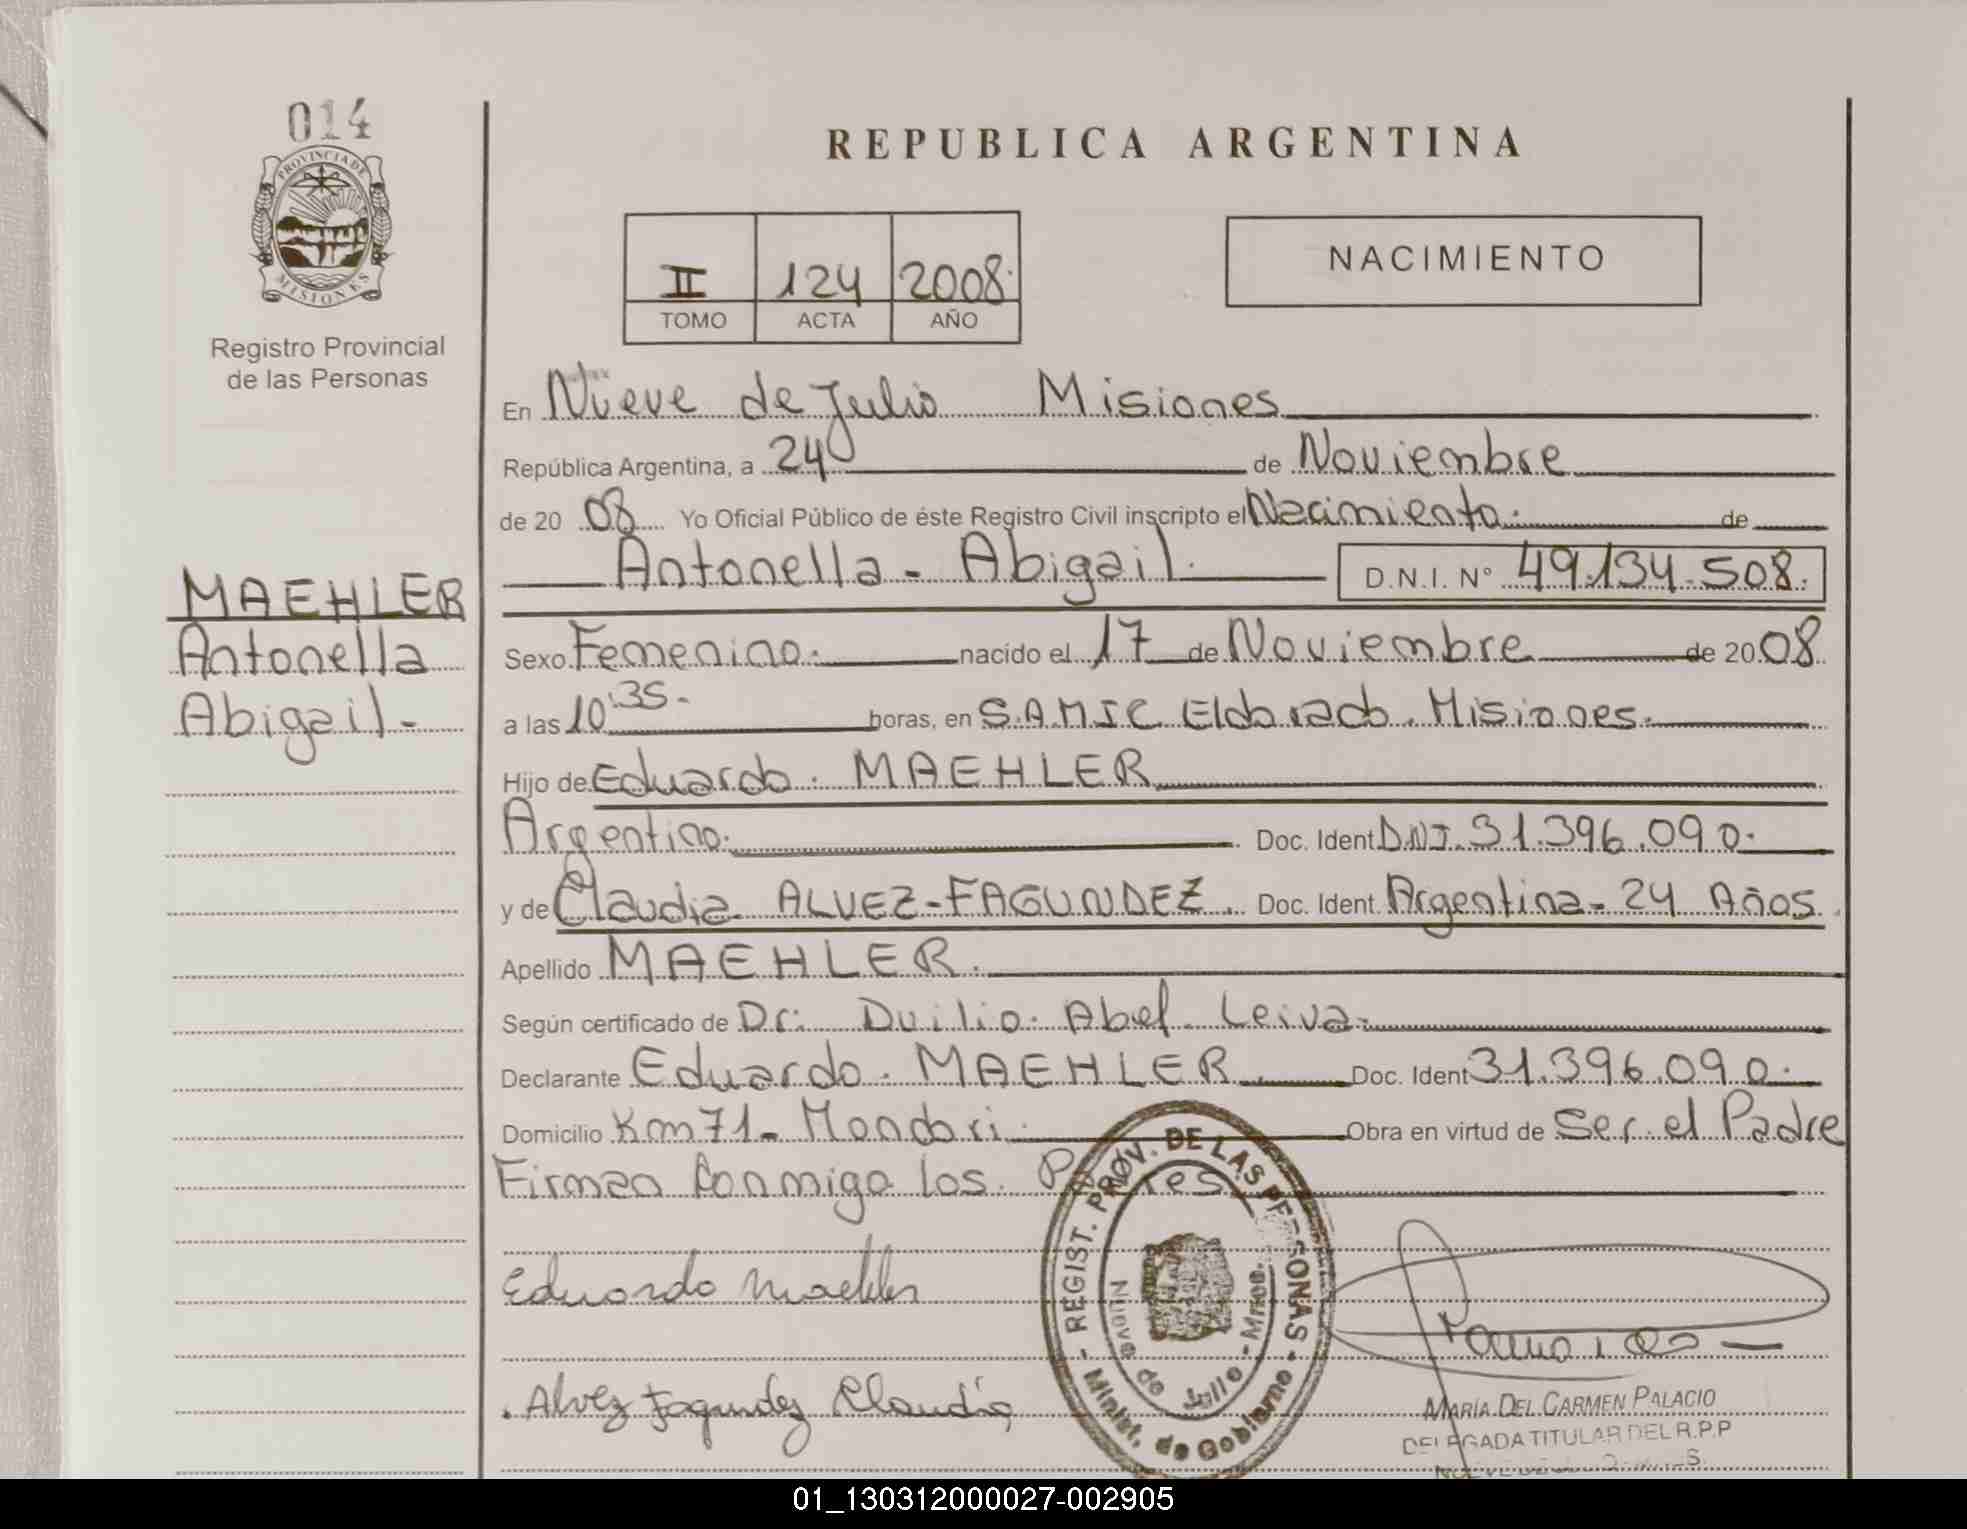 014
PROVINCIA DE
MISIONES
Registro Provincial
de las Personas
MAEHLER
Antonella
Abigail-
REPUBLICA ARGENTINA
II 124 2008.
TOMO ACTA AÑO
NACIMIENTO
En Nueve de Julio Misiones
República Argentina, a 24 de Noviembre
de 20 08 Yo Oficial Público de éste Registro Civil inscripto el Nacimiento. de
Antonella - Abigail. D.N.I. Nº 49.134.508.
Sexo Femenino. nacido el 17 de Noviembre de 20 08
a las 10:35- horas, en S.A.M.I.C Eldorado. Misiones.
Hijo de Eduardo. MAEHLER
Argentino. Doc. Ident D.N.I. 31.396.090.
y de Claudia ALVEZ-FAGUNDEZ. Doc. Ident. Argentina- 24 Años.
Apellido MAEHLER.
Según certificado de Dr: Duilio. Abel Leiva.
Declarante Eduardo. MAEHLER. Doc. Ident 31.396.090.
Domicilio Km 71- Mondori. Obra en virtud de Ser el Padre
Firman Conmigo los. Padres
Eduardo Maehler
Alvez Fagundez Claudia
- REGIST. PROV. DE LAS PERSONAS -
Minist. de Gobierno
Nueve de Julio - Mnes.
MARÍA DEL CARMEN PALACIO
DELEGADA TITULAR DEL R.P.P
01_130312000027-002905